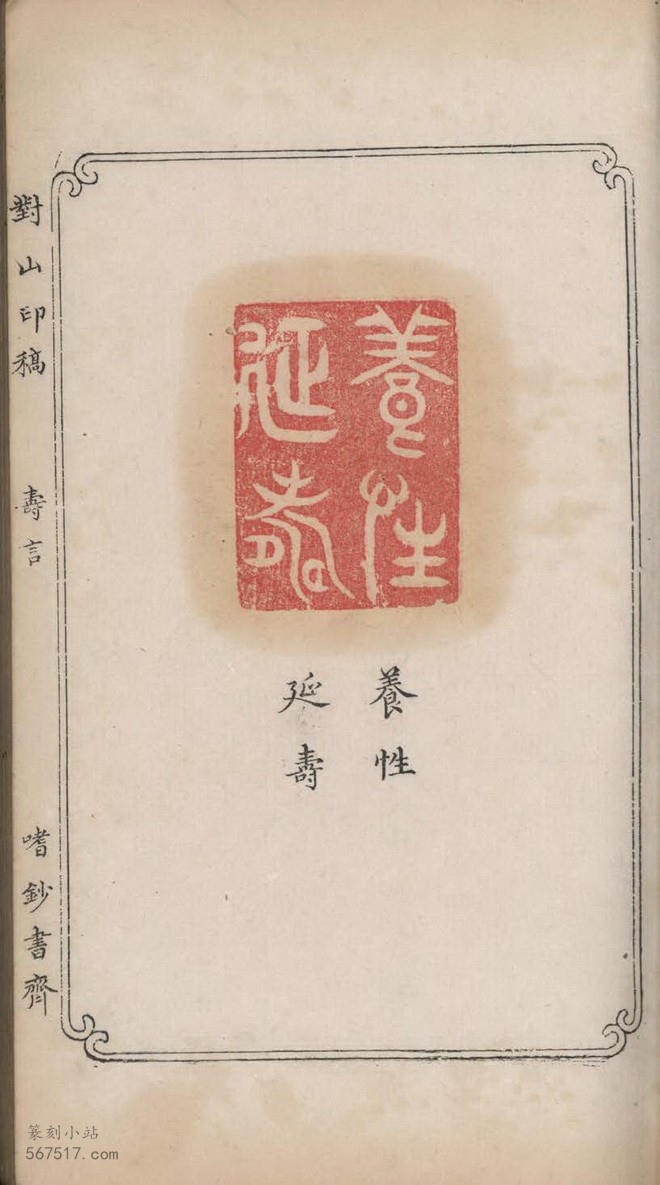 養性
延壽
養性
延壽
對山印稿 壽言 嗜鈔書齊
篆刻小站
567517.com